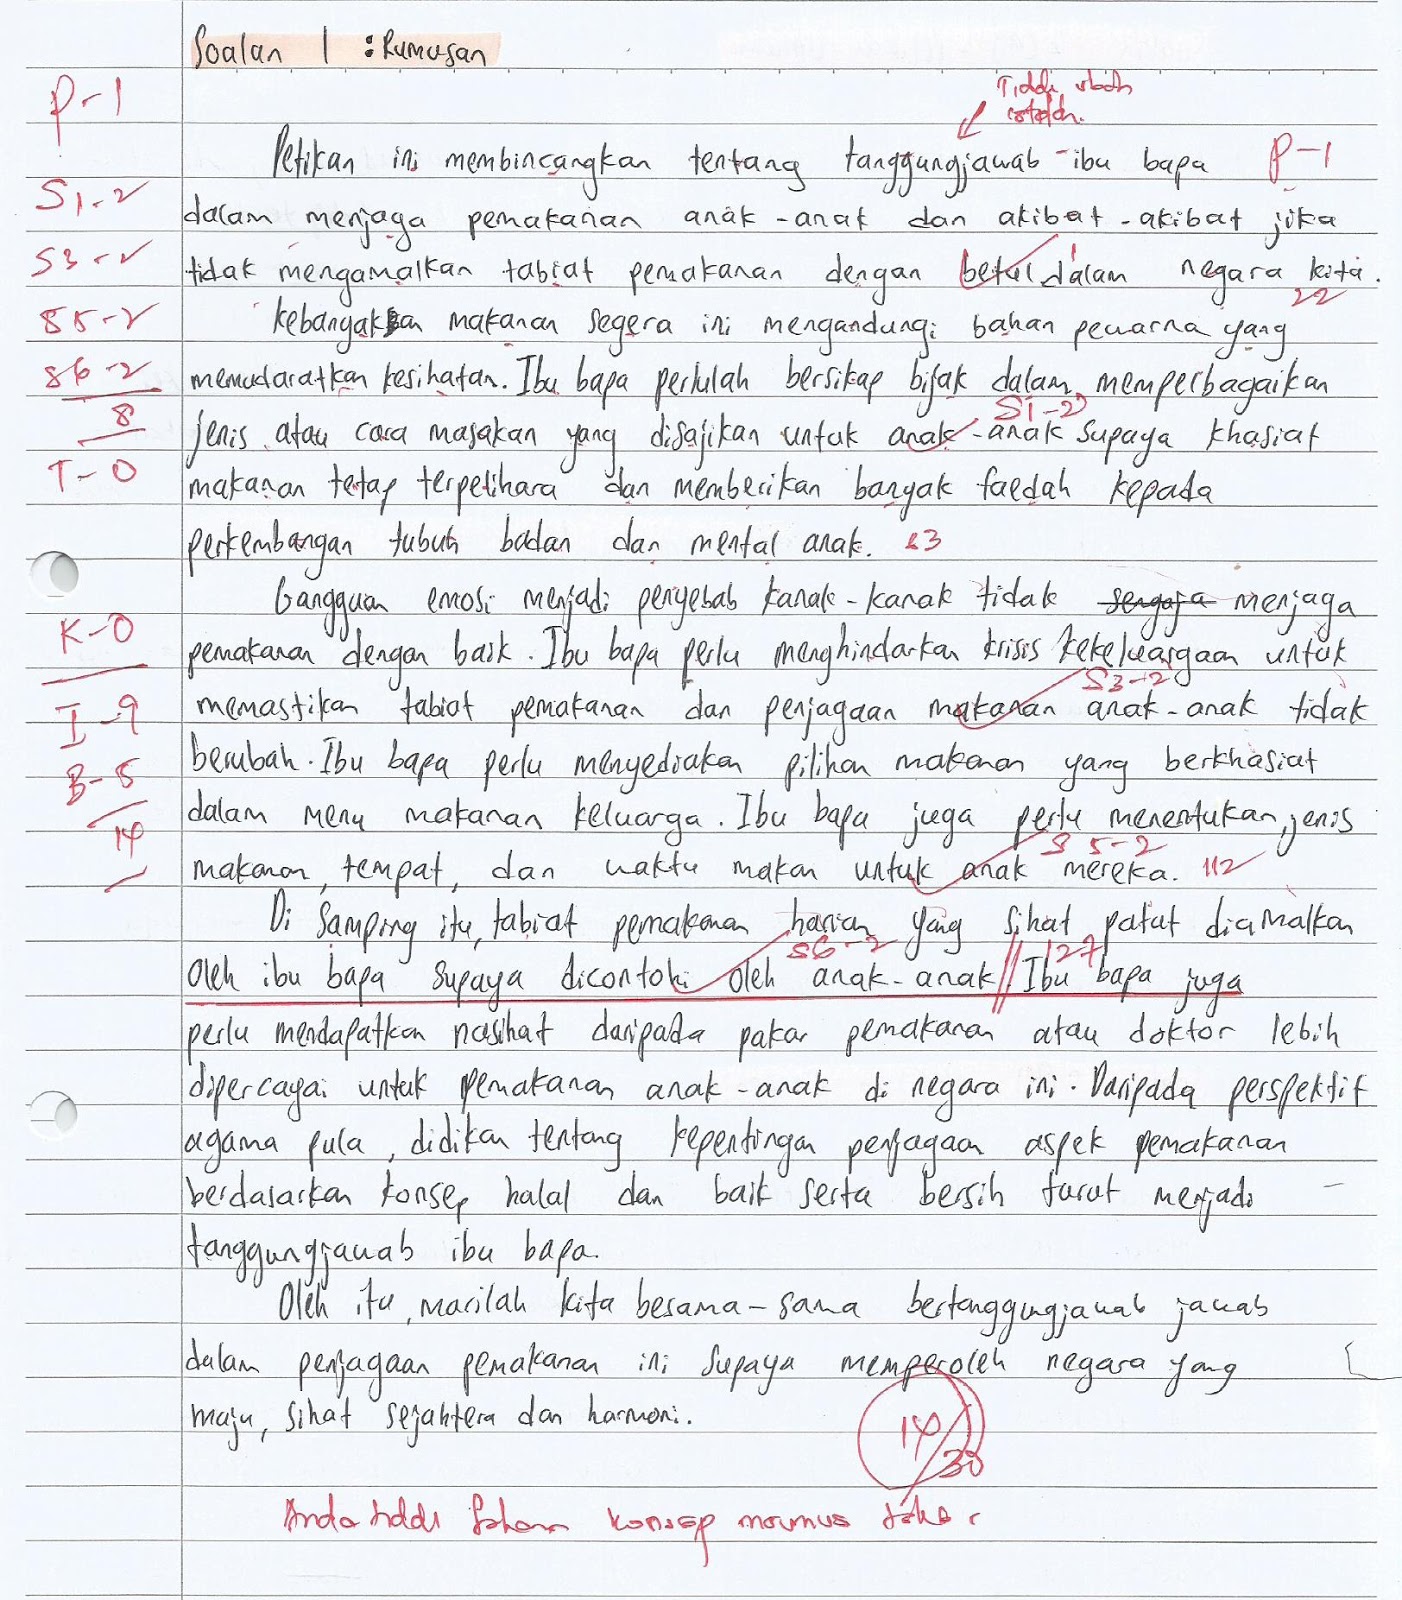 Soalan 1 : Rumusan
P-1
Tidak
Petikan ini membincangkan tentang tanggungjawab ibu bapa P-1
S1-2
dalam menjaga pemakanan anak-anak dan akibat-akibat jika
S3-2
tidak mengamalkan tabiat pemakanan dengan betul dalam negara kita.
22
S5-2
kebanyakan makanan segera ini mengandungi bahan pewarna yang
S6-2
memudaratkan kesihatan. Ibu bapa perlulah bersikap bijak dalam memperbagaikan
8
S1-2
jenis atau cara masakan yang disajikan untuk anak-anak supaya khasiat
T-0
makanan tetap terpelihara dan memberikan banyak faedah kepada
perkembangan tubuh badan dan mental anak. 63
Gangguan emosi menjadi penyebab kanak-kanak tidak sengaja menjaga
K-0
pemakanan dengan baik. Ibu bapa perlu menghindarkan krisis kekeluargaan untuk
S3-2
I-9
memastikan tabiat pemakanan dan penjagaan makanan anak-anak tidak
B-5
berubah. Ibu bapa perlu menyediakan pilihan makanan yang berkhasiat
14
dalam menu makanan keluarga. Ibu bapa juga perlu menentukan jenis
S5-2
makanan, tempat, dan waktu makan untuk anak mereka. 112
Di samping itu, tabiat pemakanan harian yang sihat patut diamalkan
S6-2 127
oleh ibu bapa supaya dicontohi oleh anak-anak // Ibu bapa juga
perlu mendapatkan nasihat daripada pakar pemakanan atau doktor lebih
dipercayai untuk pemakanan anak-anak di negara ini. Daripada perspektif
agama pula, didikan tentang kepentingan penjagaan aspek pemakanan
berdasarkan konsep halal dan baik serta bersih turut menjadi
tanggungjawab ibu bapa.
Oleh itu, marilah kita besama-sama bertanggungjawab jawab
dalam penjagaan pemakanan ini supaya memperoleh negara yang
maju, sihat sejahtera dan harmoni.
14/30
Anda tidak faham konsep